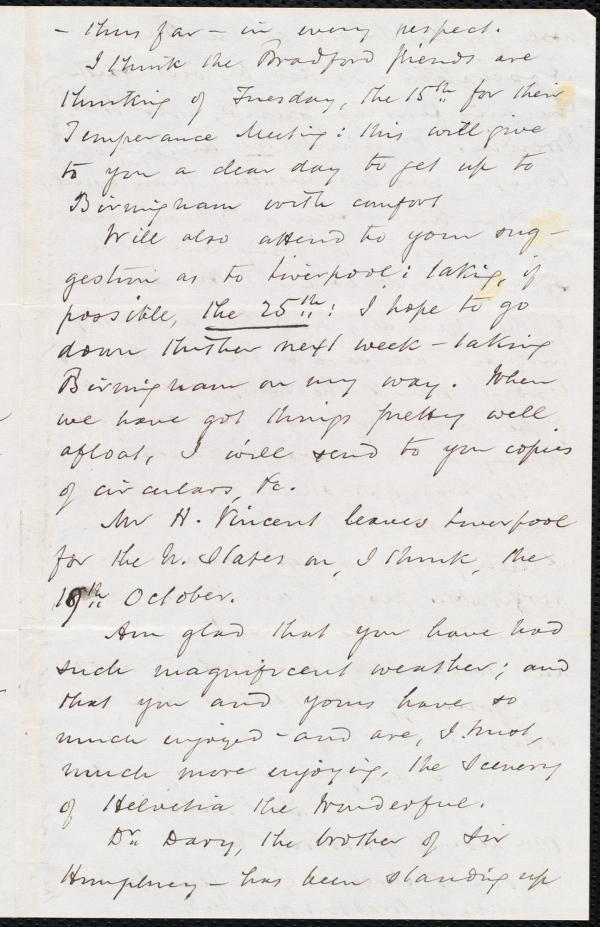 - thus far - in every respect.
I think the Bradford friends are
thinking of Tuesday, the 15th for their
Temperance Meeting: this will give
to you a clear day to get up to
Birmingham with comfort
Will also attend to your sug-
gestion as to Liverpool: taking, if
possible, the 25th: I hope to go
down thither next week - taking
Birmingham on my way. When
we have got things pretty well
afloat, I will send to you copies
of circulars, &c.
Mr H. Vincent leaves Liverpool
for the U. States on, I think, the
19th October.
Am glad that you have had
such magnificent weather; and
that you and yours have so
much enjoyed - and are, I trust,
much more enjoying, the Scenery
of Helvetia the Wonderful.
Dr. Davy, the brother of Sir
Humphrey - has been standing up